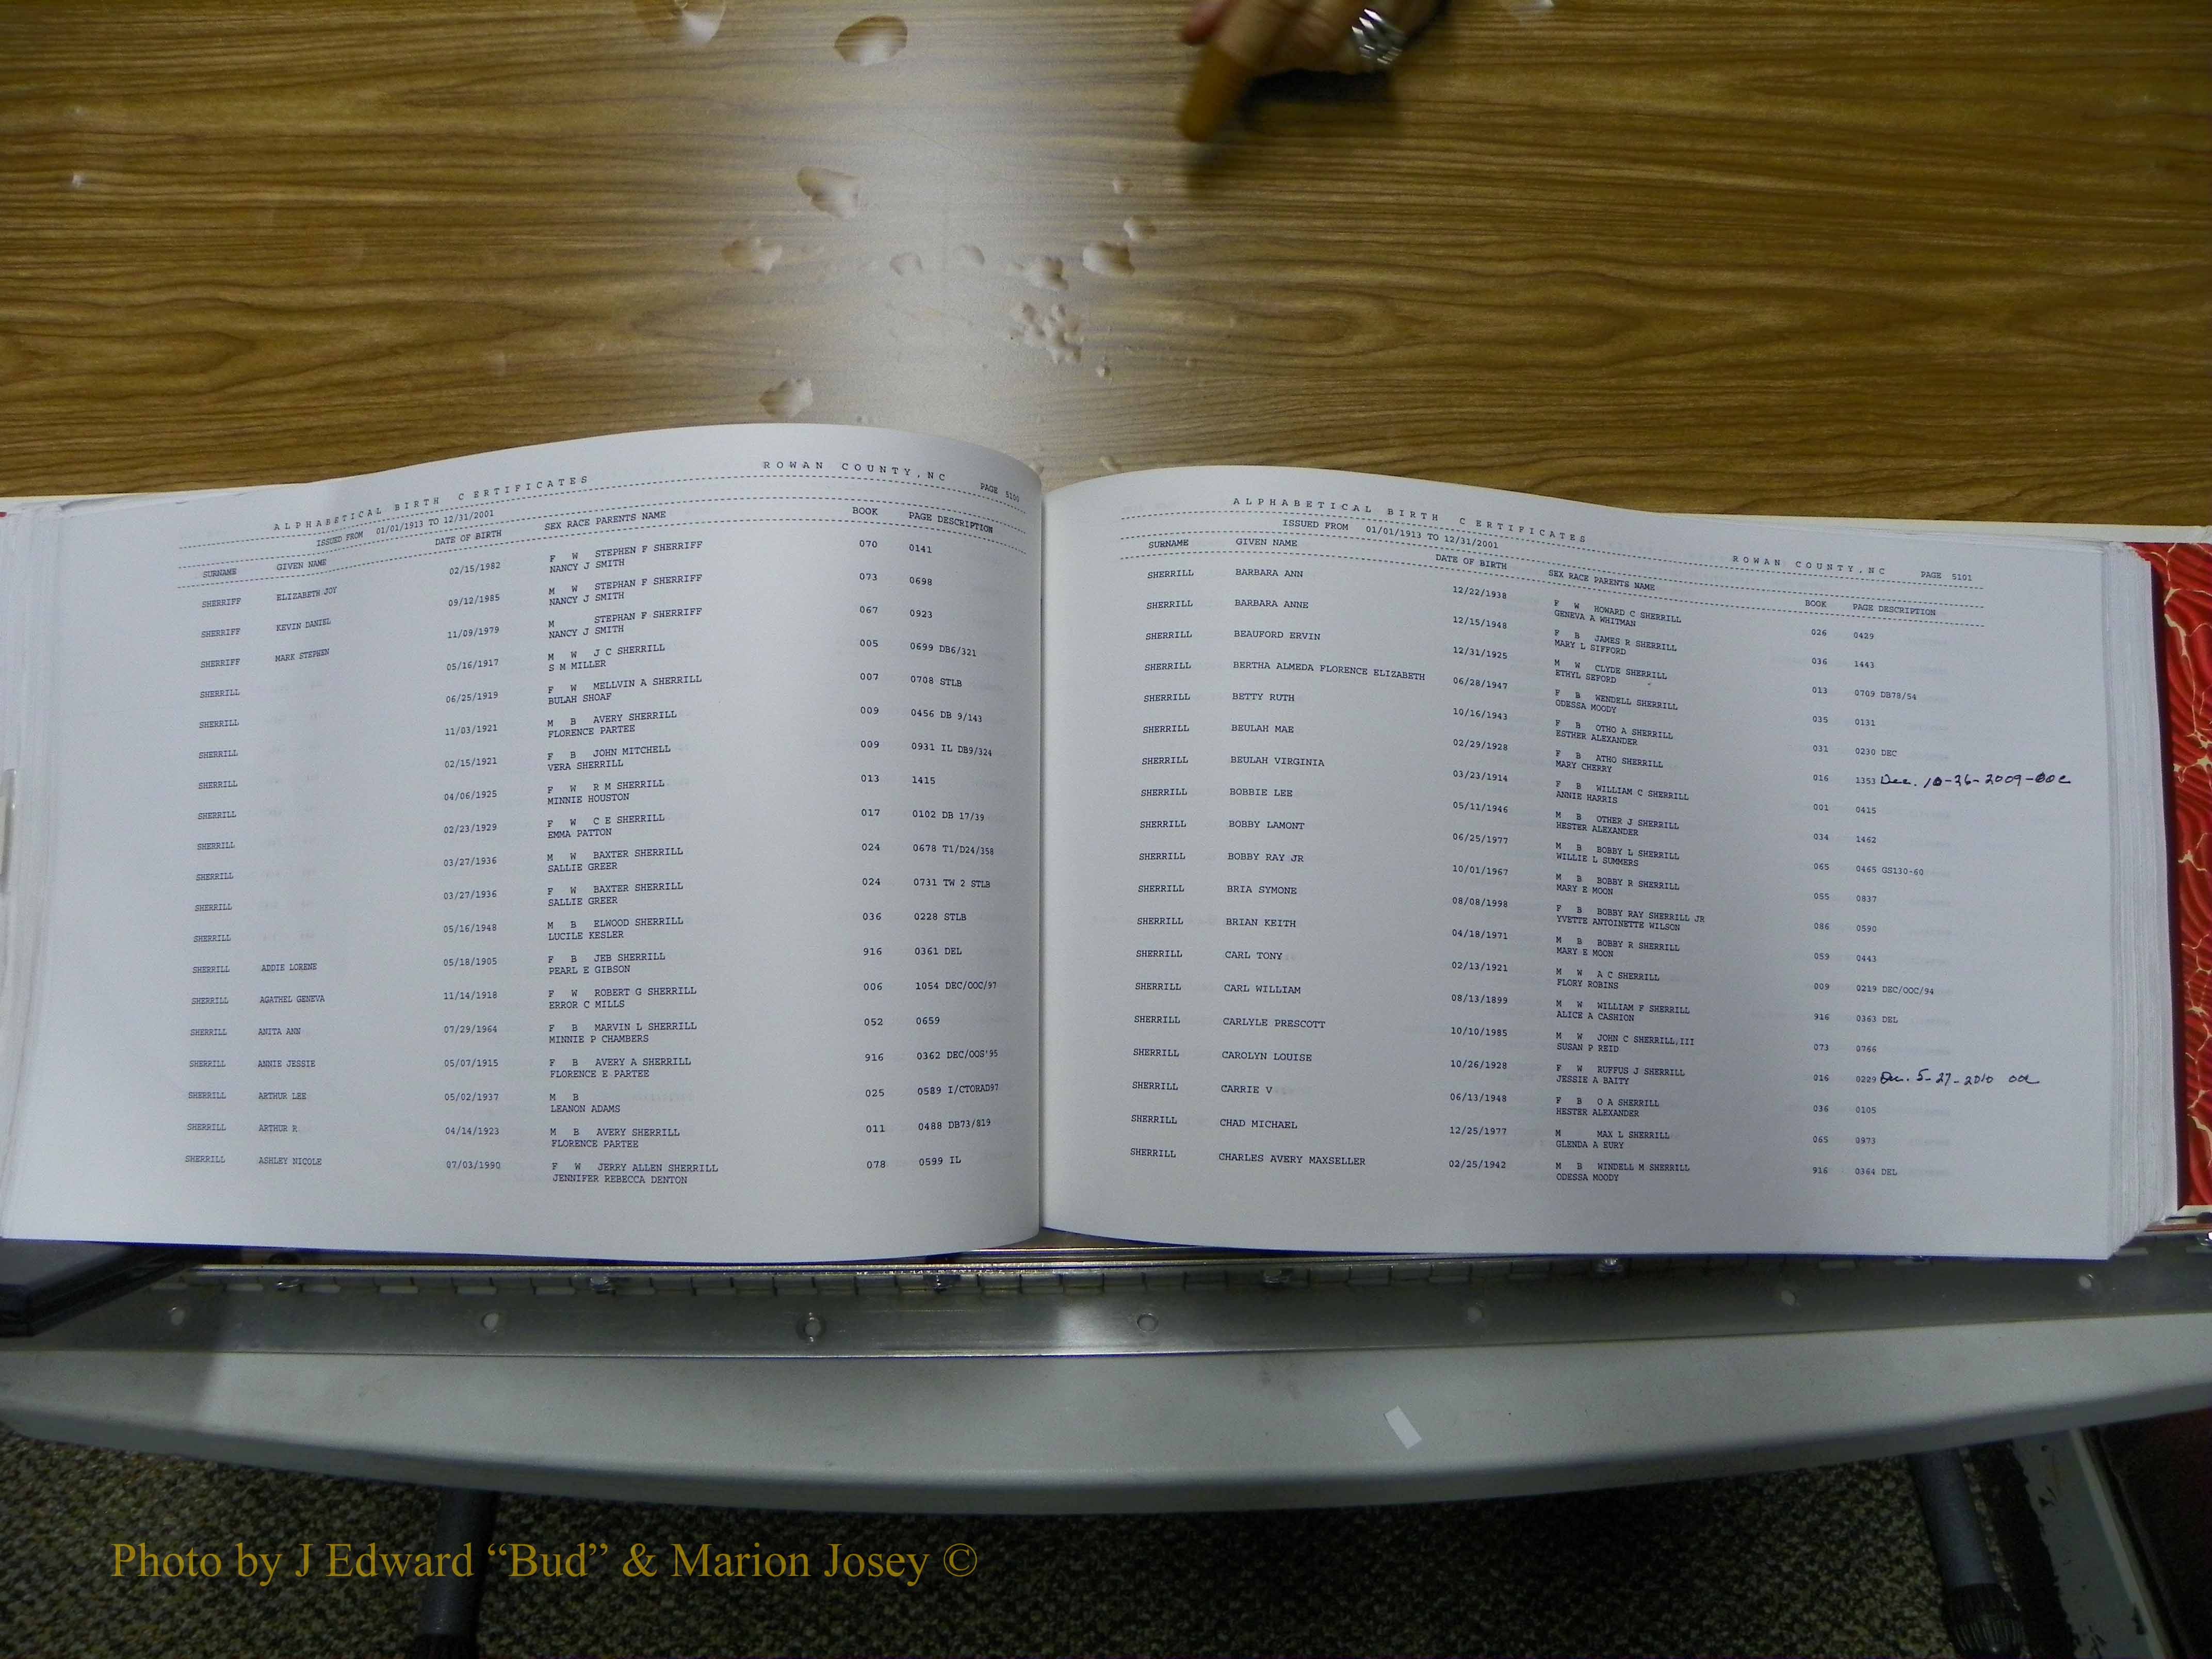 ALPHABETICAL BIRTH CERTIFICATES ROWAN COUNTY,NC PAGE 5100
ISSUED FROM 01/01/1913 TO 12/31/2001
SURNAME GIVEN NAME DATE OF BIRTH SEX RACE PARENTS NAME BOOK PAGE DESCRIPTION
SHERRIFF ELIZABETH JOY 02/15/1982 F W STEPHEN F SHERRIFF 070 0141
NANCY J SMITH
SHERRIFF KEVIN DANIEL 09/12/1985 M W STEPHAN F SHERRIFF 073 0698
NANCY J SMITH
SHERRIFF MARK STEPHEN 11/09/1979 M STEPHAN F SHERRIFF 067 0923
NANCY J SMITH
SHERRILL 05/16/1917 M W J C SHERRILL 005 0699 DB6/321
S M MILLER
SHERRILL 06/25/1919 F W MELLVIN A SHERRILL 007 0708 STLB
BULAH SHOAF
SHERRILL 11/03/1921 M B AVERY SHERRILL 009 0456 DB 9/143
FLORENCE PARTEE
SHERRILL 02/15/1921 F B JOHN MITCHELL 009 0931 IL DB9/324
VERA SHERRILL
SHERRILL 04/06/1925 F W R M SHERRILL 013 1415
MINNIE HOUSTON
SHERRILL 02/23/1929 F W C E SHERRILL 017 0102 DB 17/39
EMMA PATTON
SHERRILL 03/27/1936 M W BAXTER SHERRILL 024 0678 T1/D24/358
SALLIE GREER
SHERRILL 03/27/1936 F W BAXTER SHERRILL 024 0731 TW 2 STLB
SALLIE GREER
SHERRILL 05/16/1948 M B ELWOOD SHERRILL 036 0228 STLB
LUCILE KESLER
SHERRILL ADDIE LORENE 05/18/1905 F B JEB SHERRILL 916 0361 DEL
PEARL E GIBSON
SHERRILL AGATHEL GENEVA 11/14/1918 F W ROBERT G SHERRILL 006 1054 DEC/OOC/97
ERROR C MILLS
SHERRILL ANITA ANN 07/29/1964 F B MARVIN L SHERRILL 052 0659
MINNIE P CHAMBERS
SHERRILL ANNIE JESSIE 05/07/1915 F B AVERY A SHERRILL 916 0362 DEC/OOS'95
FLORENCE E PARTEE
SHERRILL ARTHUR LEE 05/02/1937 M B 025 0589 I/CTORAD97
LEANON ADAMS
SHERRILL ARTHUR R 04/14/1923 M B AVERY SHERRILL 011 0488 DB73/819
FLORENCE PARTEE
SHERRILL ASHLEY NICOLE 07/03/1990 F W JERRY ALLEN SHERRILL 078 0599 IL
JENNIFER REBECCA DENTON
ALPHABETICAL BIRTH CERTIFICATES ROWAN COUNTY,NC PAGE 5101
ISSUED FROM 01/01/1913 TO 12/31/2001
SURNAME GIVEN NAME DATE OF BIRTH SEX RACE PARENTS NAME BOOK PAGE DESCRIPTION
SHERRILL BARBARA ANN 12/22/1938 F W HOWARD C SHERRILL 026 0429
GENEVA A WHITMAN
SHERRILL BARBARA ANNE 12/15/1948 F B JAMES R SHERRILL 036 1443
MARY L SIFFORD
SHERRILL BEAUFORD ERVIN 12/31/1925 M W CLYDE SHERRILL 013 0709 DB78/54
ETHYL SEFORD
SHERRILL BERTHA ALMEDA FLORENCE ELIZABETH 06/28/1947 F B WENDELL SHERRILL 035 0131
ODESSA MOODY
SHERRILL BETTY RUTH 10/16/1943 F B OTHO A SHERRILL 031 0230 DEC
ESTHER ALEXANDER
SHERRILL BEULAH MAE 02/29/1928 F B ATHO SHERRILL 016 1353 Dec. 10-26-2009-OOC
MARY CHERRY
SHERRILL BEULAH VIRGINIA 03/23/1914 F B WILLIAM C SHERRILL 001 0415
ANNIE HARRIS
SHERRILL BOBBIE LEE 05/11/1946 M B OTHER J SHERRILL 034 1462
HESTER ALEXANDER
SHERRILL BOBBY LAMONT 06/25/1977 M B BOBBY L SHERRILL 065 0465 GS130-60
WILLIE L SUMMERS
SHERRILL BOBBY RAY JR 10/01/1967 M B BOBBY R SHERRILL 055 0837
MARY E MOON
SHERRILL BRIA SYMONE 08/08/1998 F B BOBBY RAY SHERRILL JR 086 0590
YVETTE ANTOINETTE WILSON
SHERRILL BRIAN KEITH 04/18/1971 M B BOBBY R SHERRILL 059 0443
MARY E MOON
SHERRILL CARL TONY 02/13/1921 M W A C SHERRILL 009 0219 DEC/OOC/94
FLORY ROBINS
SHERRILL CARL WILLIAM 08/13/1899 M W WILLIAM F SHERRILL 916 0363 DEL
ALICE A CASHION
SHERRILL CARLYLE PRESCOTT 10/10/1985 M W JOHN C SHERRILL,III 073 0766
SUSAN P REID
SHERRILL CAROLYN LOUISE 10/26/1928 F W RUFFUS J SHERRILL 016 0229 Dec. 5-27-2010 OOC
JESSIE A BAITY
SHERRILL CARRIE V 06/13/1948 F B O A SHERRILL 036 0105
HESTER ALEXANDER
SHERRILL CHAD MICHAEL 12/25/1977 M MAX L SHERRILL 065 0973
GLENDA A EURY
SHERRILL CHARLES AVERY MAXSELLER 02/25/1942 M B WINDELL M SHERRILL 916 0364 DEL
ODESSA MOODY
Photo by J Edward “Bud” & Marion Josey ©